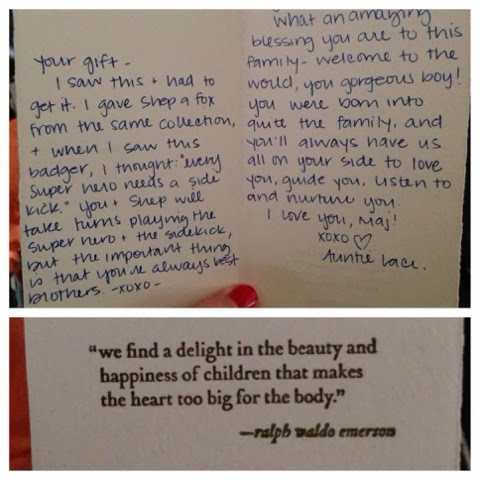 your gift -
I saw this + had to
get it. I gave Shep a fox
from the same collection,
+ when I saw this
badger, I thought: "every
super hero needs a side
kick." you + Shep will
take turns playing the
super hero + the sidekick,
but the important thing
is that you're always best
brothers. -xoxo-
what an amazing
blessing you are to this
family - welcome to the
world, you gorgeous boy!
you were born into
quite the family, and
you'll always have us
all on your side to love
you, guide you, listen to
and nurture you.
I love you, Maj!
xoxo ♡
Auntie Laci.
"we find a delight in the beauty and
happiness of children that makes
the heart too big for the body."
—ralph waldo emerson